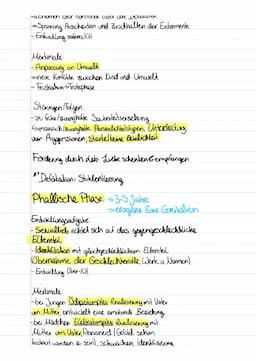 ⇒ Spannung Ausscheiden und Zurückhalten der Exkremente
- Entwicklung reiferes ICH
Merkmale:
- Anpassung an Umwelt
⇒ neue Konflikte zwischen Kind und Umwelt
- Frustration ⇒ Trotzphase
Störungen/Folgen
- zu frühe/zwanghafte Sauberkeitserziehung
zwanghafte Persönlichkeitstypen, Unterdrückung
von Aggressionen, übertriebene Reinlichkeit
Förderung durch das Liebe schenken & empfangen
Phallische Phase ⇒ 3-5 Jahre
⇒ erogene Zone Genitalien
Entwicklungsaufgabe
- Sexualtrieb richtet sich auf das gegengeschlechtliche
Elternteil
- Identifikation mit gleichgeschlechtlichem Elternteil
Übernahme der Geschlechterrolle (Werte u. Normen)
- Entwicklung Über-ICH
Merkmale:
- bei Jungen Ödipuskomplex Rivalisierung mit Vater
um Mutter entwickelt eine emotionale Beziehung
- bei Mädchen Elektrakomplex Rivalisierung mit
Mutter um Vater, Penisneid (Gefühl schon
kastriert worden zu sein), schwächere Identifizierung